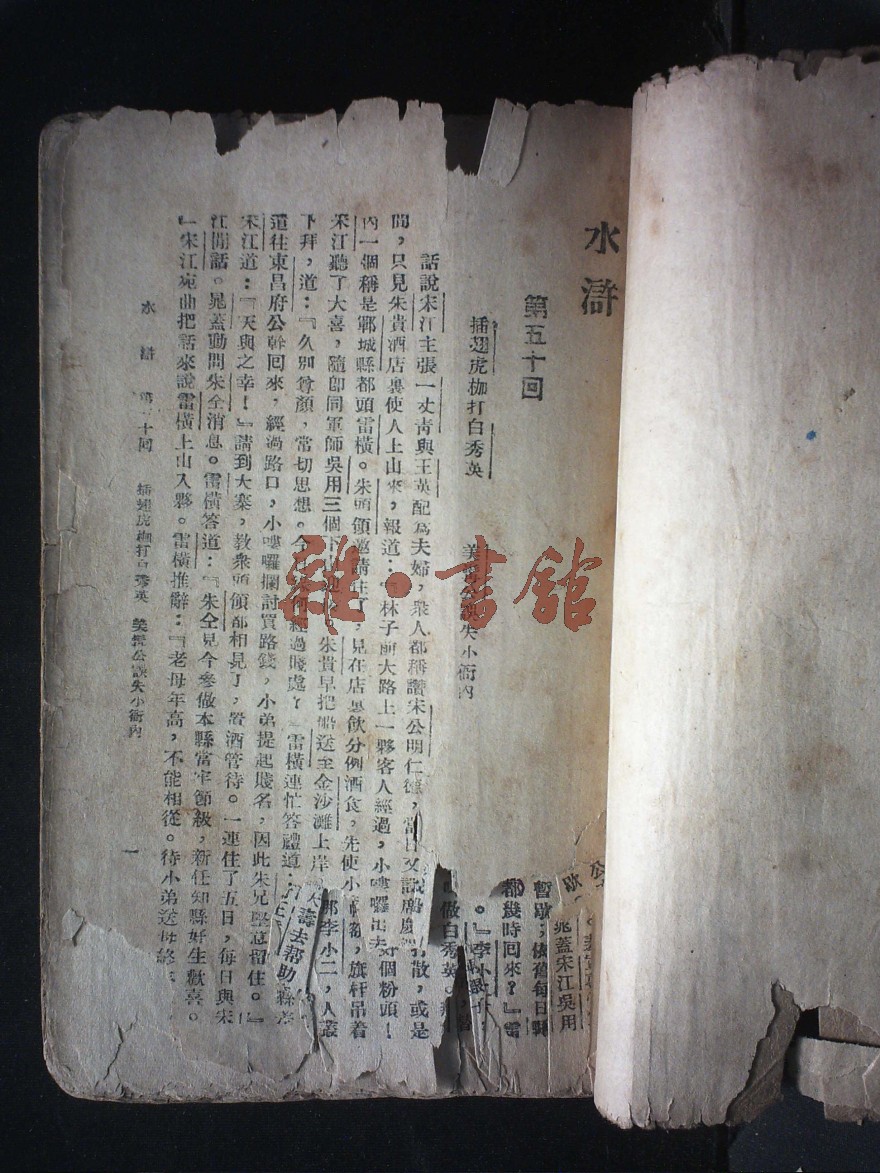 水滸
第五十回
插翅虎枷打白秀英
美髯公誤失小衙內
話說宋江主張一丈青與王英配為夫婦，衆人都稱讚宋公明仁德，當日又設席慶
間，只見朱貴酒店裏使人上山來，報道：『林子前大路上一夥客人經過，小嘍囉出去
內一個稱是鄆城縣都頭雷橫。朱頭領邀請住了，見在店裏飲分例酒食，先使小
宋江聽了大喜，隨卽同軍師吳用三個下 朱貴早把船送至金沙灘上岸
下拜，道：『久別尊顏，常切思想。今 何經過賤處？』雷橫連忙答禮道：
遣往東昌府公幹回來，經過路口，小嘍囉攔討買路錢，小弟提起賤名，因此朱兄堅意留住。』
宋江道：『天與之幸！』請到大寨，敎衆頭領都相見了，置酒管待。一連住了五日，每日與宋
江閒話。晁蓋動問朱仝消息。雷橫答道：『朱仝見今參做本縣當牢節級，新任知縣好生歡喜。
』宋江宛曲把話來說雷橫上山入夥。雷橫推辭：『老母年高，不能相從。待小弟送母終
水滸 第 十回 插翅虎枷打白秀英 美髯公誤失小衙內
一
晁蓋宋江吳用
暫歇；依舊每日縣
都幾時回來？』雷
。』李小二
做白秀英。
散，或是
個粉頭
旗杆吊着
那李小二，人叢
去幫助
雜·書館